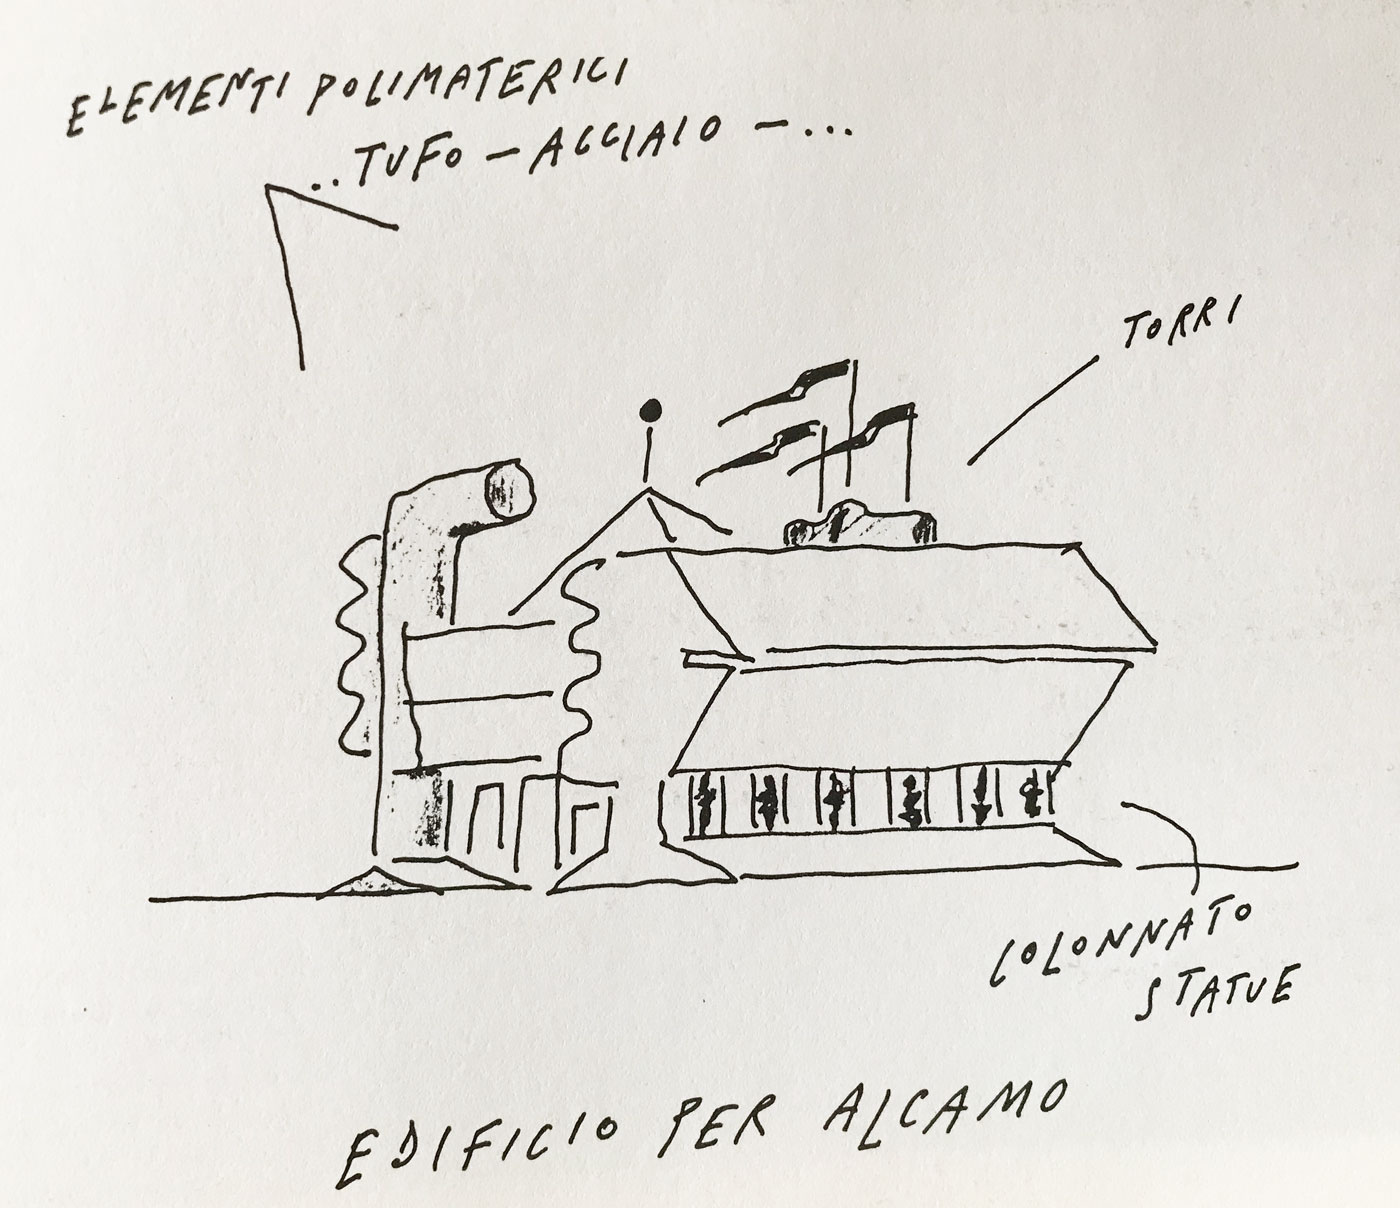 ELEMENTI POLIMATERICI
..TUFO - ACCIAIO - ...
TORRI
COLONNATO
STATUE
EDIFICIO PER ALCAMO